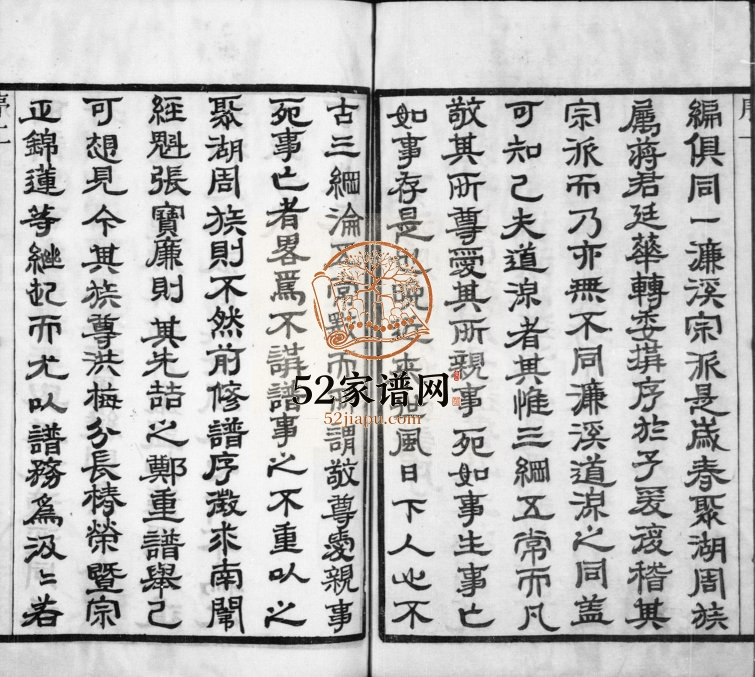 編俱同一濂溪宗派是歲春聚湖周族
屬蔣君廷華轉委撰序於予爰復稽其
宗派而乃亦無不同濂溪道源之同蓋
可知已夫道源者其惟三綱五常而凡
敬其所尊愛其所親事死如事生事亡
如事存是 風日下人心不
古三綱淪五 謂敬尊愛親事
死事亡者畧爲不講譜事之不重以之
聚湖周族則不然前修譜序徵求南閣
經魁張寶廉則其先喆之鄭重譜舉已
可想見今其族尊洪梅分長椿榮暨宗
正錦蓮等繼起而尤以譜務爲汲〻若
52家谱网
52jiapu.com